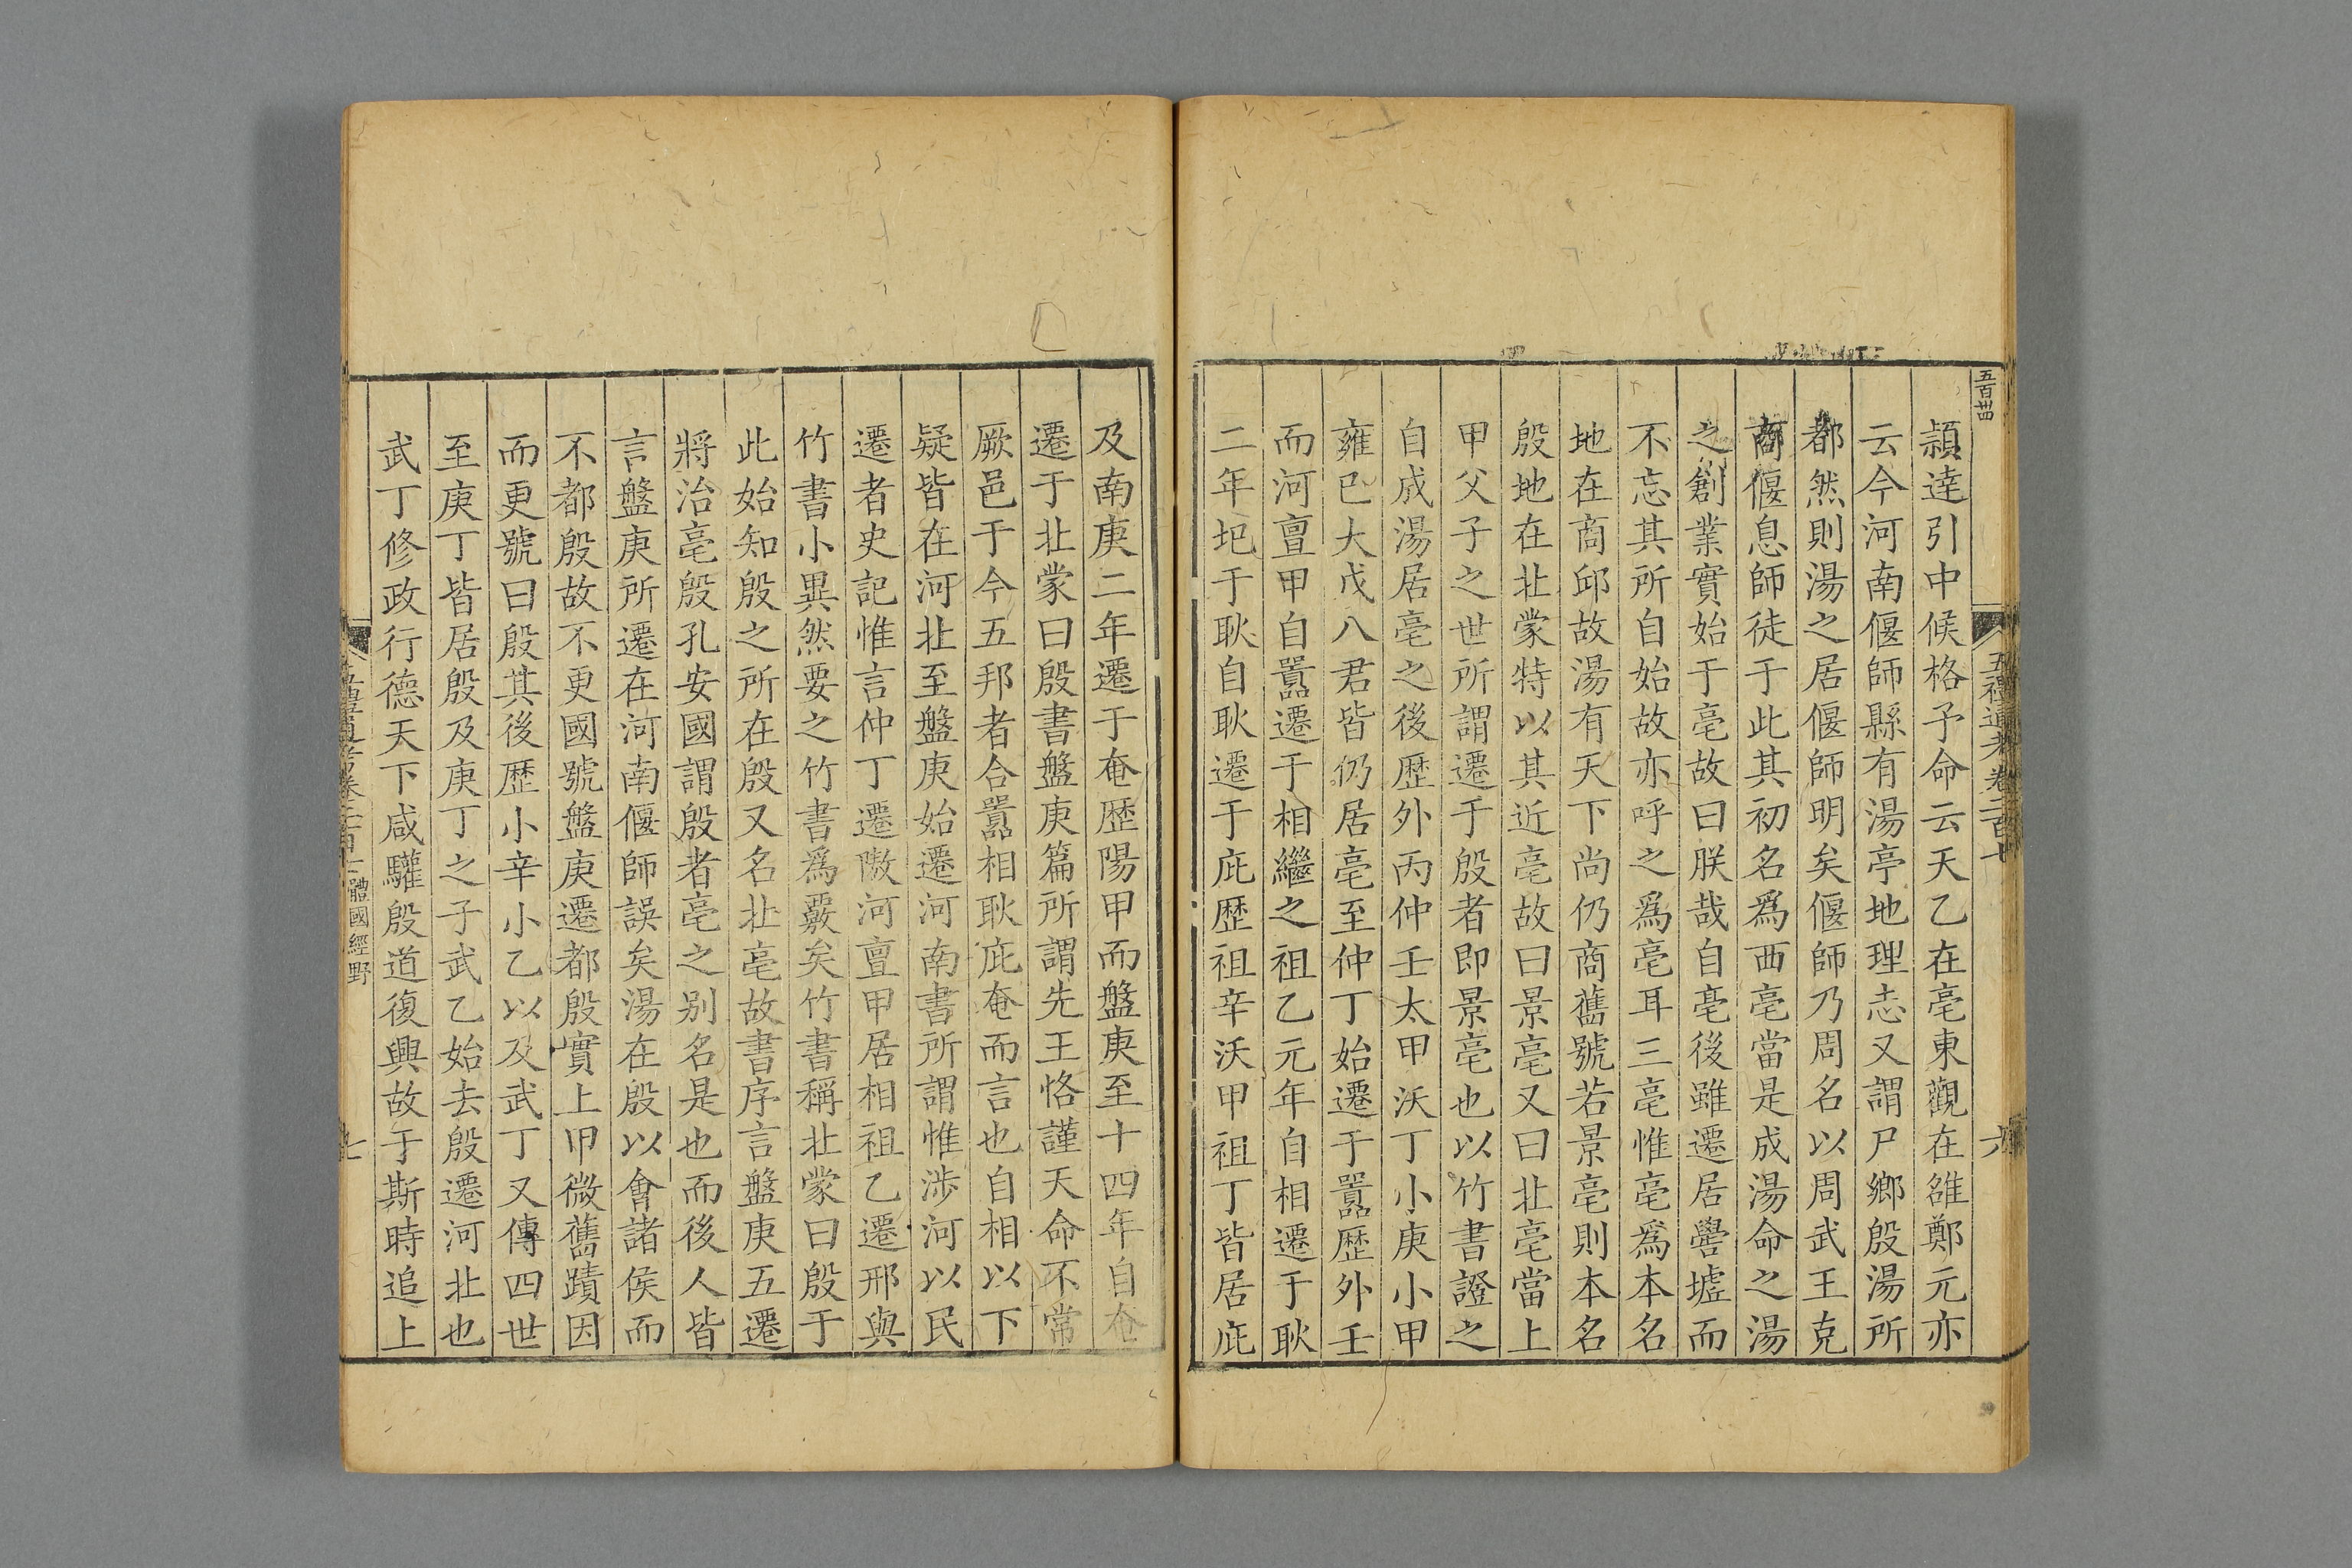 五百卌四
五禮通考卷二百十
六
頴達引中候格予命云天乙在亳東觀在雒鄭元亦
云今河南偃師縣有湯亭地理志又謂尸鄉殷湯所
都然則湯之居偃師明矣偃師乃周名以周武王克
商偃息師徒于此其初名爲西亳當是成湯命之湯
之創業實始于亳故曰朕哉自亳後雖遷居嚳墟而
不忘其所自始故亦呼之爲亳耳三亳惟亳爲本名
地在商邱故湯有天下尚仍商舊號若景亳則本名
殷地在北蒙特以其近亳故曰景亳又曰北亳當上
甲父子之世所謂遷于殷者即景亳也以竹書證之
自成湯居亳之後歴外丙仲壬太甲沃丁小庚小甲
雍已大戊八君皆仍居亳至仲丁始遷于囂歴外壬
而河亶甲自囂遷于相繼之祖乙元年自相遷于耿
二年圯于耿自耿遷于庇歴祖辛沃甲祖丁皆居庇
及南庚二年遷于奄歴陽甲而盤庚至十四年自奄
遷于北蒙曰殷書盤庚篇所謂先王恪謹天命不常
厥邑于今五邦者合囂相耿庇奄而言也自相以下
疑皆在河北至盤庚始遷河南書所謂惟涉河以民
遷者史記惟言仲丁遷隞河亶甲居相祖乙遷邢與
竹書小異然要之竹書爲覈矣竹書稱北蒙曰殷于
此始知殷之所在殷又名北亳故書序言盤庚五遷
將治亳殷孔安國謂殷者亳之别名是也而後人皆
言盤庚所遷在河南偃師誤矣湯在殷以會諸侯而
不都殷故不更國號盤庚遷都殷實上甲微舊蹟因
而更號曰殷其後歴小辛小乙以及武丁又傳四世
至庚丁皆居殷及庚丁之子武乙始去殷遷河北也
武丁修政行德天下咸驩殷道復興故于斯時追上
五禮通考卷二百十
體國經野
七